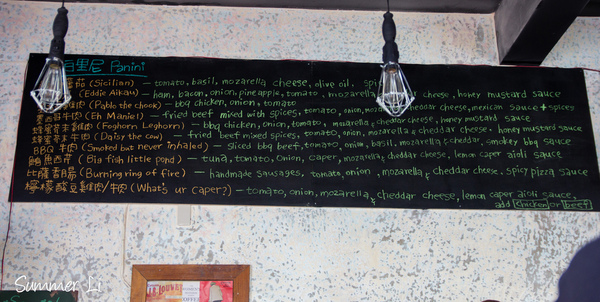 百里尼 Panini
茄 (Sicilian) — tomato, basil, mozarella cheese, olive oil,
(Eddie Aikau) — ham, bacon, onion, pineapple, tomato, mozarella, cheddar cheese, honey mustard sauce
雞肉 (Pablo the chook) — bbq chicken, onion, tomato
墨西哥牛肉 (Eh Maniel) — fried beef mixed with spices, tomato, onion, mozarella & cheddar cheese, mexican sauce + spices
蜂蜜芥末雞肉 (Foghorn Leghorn) — bbq chicken, onion, tomato, mozarella & cheddar cheese, honey mustard sauce
蜂蜜芥末牛肉 (Daisy the cow) — fried beef mixed spices, tomato, onion, mozarella & cheddar cheese, honey mustard sauce
BBQ 牛肉 (Smoked but never inhaled) — sliced bbq beef, tomato, onion, basil, mozarella & cheddar, smokey bbq sauce
鮪魚西芹 (Big fish little pond) — tuna, tomato, onion, caper, mozarella & cheddar cheese, lemon caper aioli sauce
比薩香腸 (Burning ring of fire) — handmade sausages, tomato, onion, mozarella & cheddar cheese, spicy pizza sauce
檸檬酸豆雞肉/牛肉 (What's ur caper?) — tomato, onion, mozarella & cheddar cheese, lemon caper aioli sauce,
add chicken or beef
Summer Li